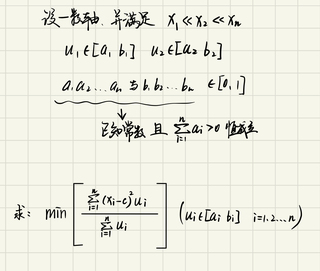 设一数轴. 并满足 x₁ << x₂ << xₙ
u₁∈[a₁ b₁] u₂∈[a₂ b₂]
a₁.a₂...aₙ 与 b₁.b₂...bₙ ∈[0,1]
↓
已知常数 且 \sum_{i=1}^{n} aᵢ>0 恒成立
求: min [ \frac{\sum_{i=1}^{n}(xᵢ-c)²uᵢ}{\sum_{i=1}^{n}uᵢ} ] (uᵢ∈[aᵢ bᵢ] i=1.2...n)